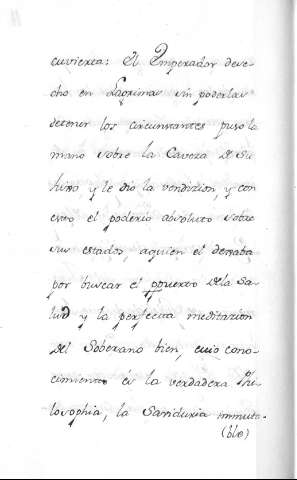 cuvierta: El Emperador deve-
cho en Lagrimas sin poderlas
detener los circunstantes puso la
mano sobre la Caveza de Su
hixo y le dio la vendizion, y con
esto, el poderio absoluto sobre
sus estados, aquien el dexaba
por buscar el puerto de la Sa-
lud y la perfecta meditazion
del Soberano bien, cuio cono-
cimiento és la verdadera Phi-
losophia, la Saviduria inmuta-
(ble)